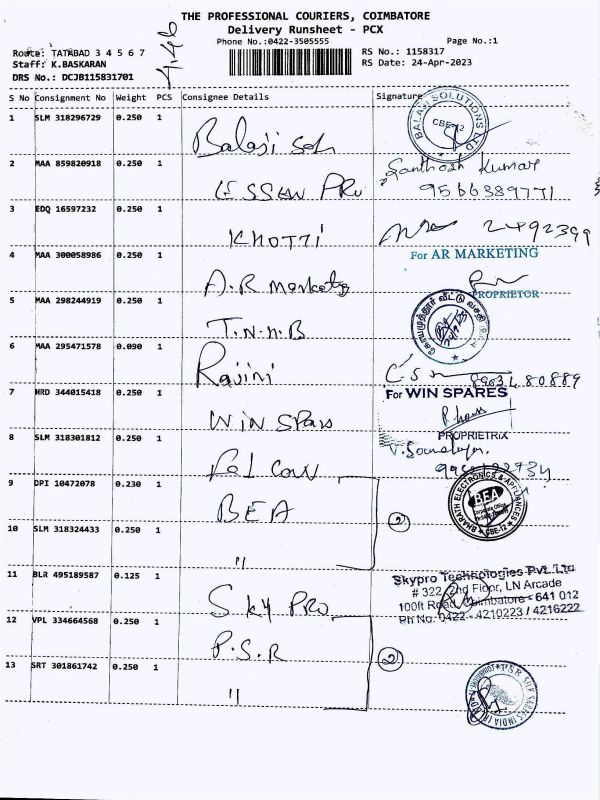 THE PROFESSIONAL COURIERS, COIMBATORE
Delivery Runsheet - PCX
Phone No.:0422-3505555 Page No.:1
Route: TATABAD 3 4 5 6 7 RS No.: 1158317
Staff: K.BASKARAN RS Date: 24-Apr-2023
DRS No.: DCJB115831701
S No Consignment No Weight PCS Consignee Details Signature
1 SLM 318296729 0.250 1 Balaji Soln
BALAJI SOLUTIONS
CBE-12
2 MAA 859820918 0.250 1 Santhosh Kumar
ESSEN PRO 9566389771
3 EDQ 16597232 0.250 1
KHOTTI 2492399
4 MAA 300058986 0.250 1 For AR MARKETING
A.R Marketg
PROPRIETOR
5 MAA 298244919 0.250 1
T.N.H.B
கோயமுத்தூர் வீட்டு வசதி
6 MAA 295471578 0.090 1
Rajini
7 HRD 344015418 0.250 1 For WIN SPARES
WIN Spars
PROPRIETRIX
8 SLM 318301812 0.250 1
Falcon
9 DPI 10472078 0.230 1
BEA 2
BHARATH ELECTRONICS & APPLIANCES
BEA
Corporate Office
CBE-12
10 SLM 318324433 0.250 1
"
11 BLR 495189587 0.125 1 Skypro Technologies Pvt. Ltd
SKY PRO # 322, 2nd Floor, LN Arcade
100ft Road, Coimbatore - 641 012
Ph No: 0422 - 4210223 / 4216222
12 VPL 334664568 0.250 1
P.S.R 2
13 SRT 301861742 0.250 1
"
PSR SILK SAREES INDIA